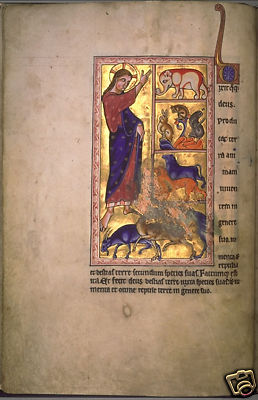 Dixitq;
deus.
Produ
cat ter
ra ani
mam
uiuen
tem in
genere
suo. iu
menta &
reptilia
et bestias terre secundum species suas. Factumq; est
ita. Et fecit deus bestias terre iuxta species suas. & iu
menta et omne reptile terre in genere suo.